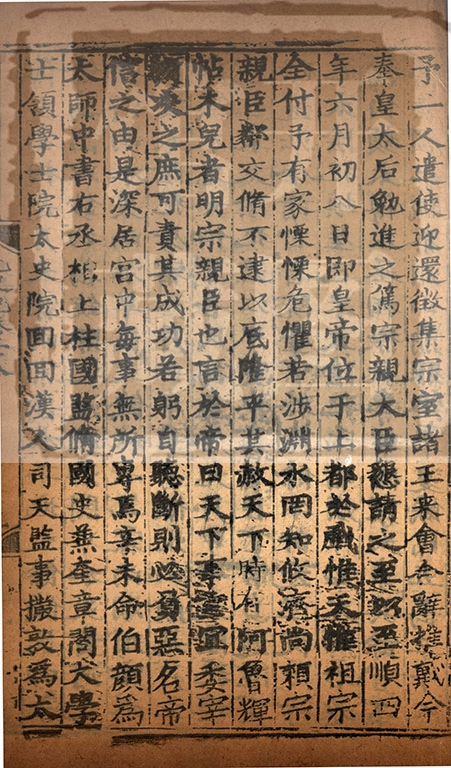 予一人遣使迎還徵集宗室諸王来會合辭推戴今
奉皇太后勉進之篤宗親大臣懇請之至以至順四
年六月初八日即皇帝位于上都於戲惟天惟祖宗
全付予有家慄慄危懼若涉淵水罔知攸濟尚賴宗
親臣鄰交脩不逮以底隆平其赦天下時有阿魯輝
帖木兒者明宗親臣也言於帝曰天下事重宜委宰
決之庶可責其成功若躬自聽斷則必負惡名帝
信之由是深居宮中每事無所專焉辛未命伯顏為
太師中書右丞相上柱國監脩國史兼奎章閣大學
士領學士院太史院回回漢人司天監事撒敦為太